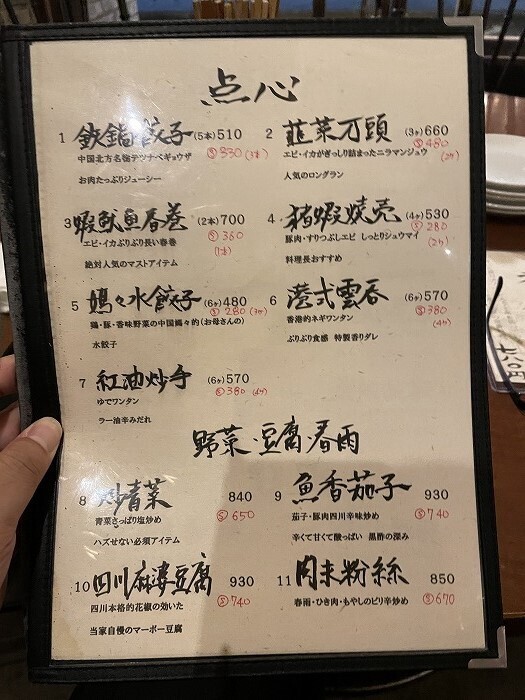 点心
1 鉄鍋餃子 (5本) 510
Ⓢ 330 (3本)
中国北方名物テツナベギョウザ
お肉たっぷりジューシー
2 韮菜万頭 (3ヶ) 660
Ⓢ 480 (2ヶ)
エビ・イカがぎっしり詰まったニラマンジュウ
人気のロングラン
3 蝦魷魚春巻 (2本) 700
Ⓢ 360 (1本)
エビ・イカぷりぷり長い春巻
絶対人気のマストアイテム
4 猪蝦焼売 (4ヶ) 530
Ⓢ 280 (2ヶ)
豚肉・すりつぶしエビ しっとりシュウマイ
料理長おすすめ
5 媽々水餃子 (6ヶ) 480
Ⓢ 280 (3ヶ)
鶏・豚・香味野菜の中国媽々的(お母さんの)
水餃子
6 港式雲呑 (6ヶ) 570
Ⓢ 380 (4ヶ)
香港的ネギワンタン
ぷりぷり食感 特製香りダレ
7 紅油炒手 (6ヶ) 570
Ⓢ 380 (4ヶ)
ゆでワンタン
ラー油辛みだれ
野菜・豆腐・春雨
8 炒青菜 840
Ⓢ 650
青菜さっぱり塩炒め
ハズせない必須アイテム
9 魚香茄子 930
Ⓢ 740
茄子・豚肉四川辛味炒め
辛くて甘くて酸っぱい 黒酢の深み
10 四川麻婆豆腐 930
Ⓢ 740
四川本格的花椒の効いた
当家自慢のマーボー豆腐
11 肉末粉絲 850
Ⓢ 670
春雨・ひき肉・もやしのピリ辛炒め